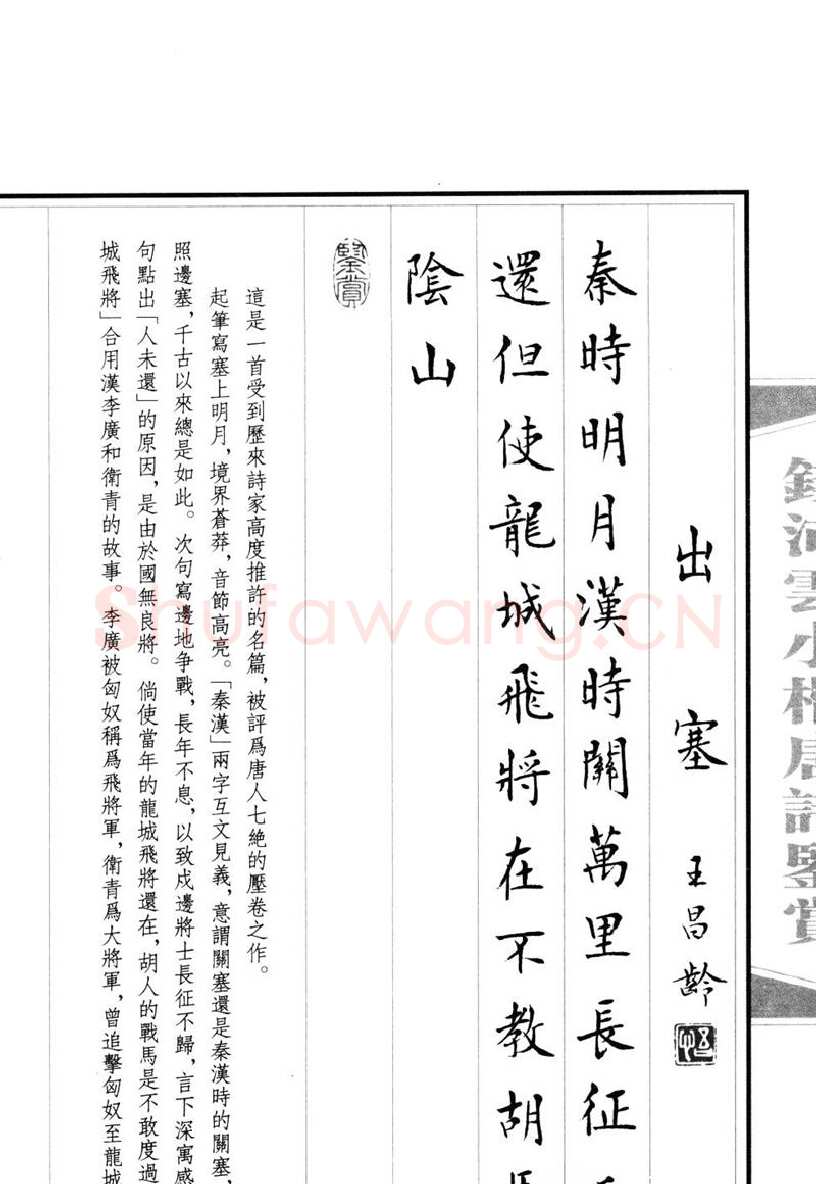 錢沛雲小楷唐詩鑒賞
出塞 王昌齡
秦時明月漢時關萬里長征
還但使龍城飛將在不教胡
陰山
鑒賞
這是一首受到歷來詩家高度推許的名篇，被評爲唐人七絶的壓卷之作。
起筆寫塞上明月，境界蒼莽，音節高亮。「秦漢」兩字互文見義，意謂關塞還是秦漢時的關塞，
照邊塞，千古以來總是如此。次句寫邊地争戰，長年不息，以致戍邊將士長征不歸，言下深寓感
句點出「人未還」的原因，是由於國無良將。倘使當年的龍城飛將還在，胡人的戰馬是不敢度過
城飛將」合用漢李廣和衛青的故事。李廣被匈奴稱爲飛將軍，衛青爲大將軍，曾追擊匈奴至龍城
Shufawang.CN